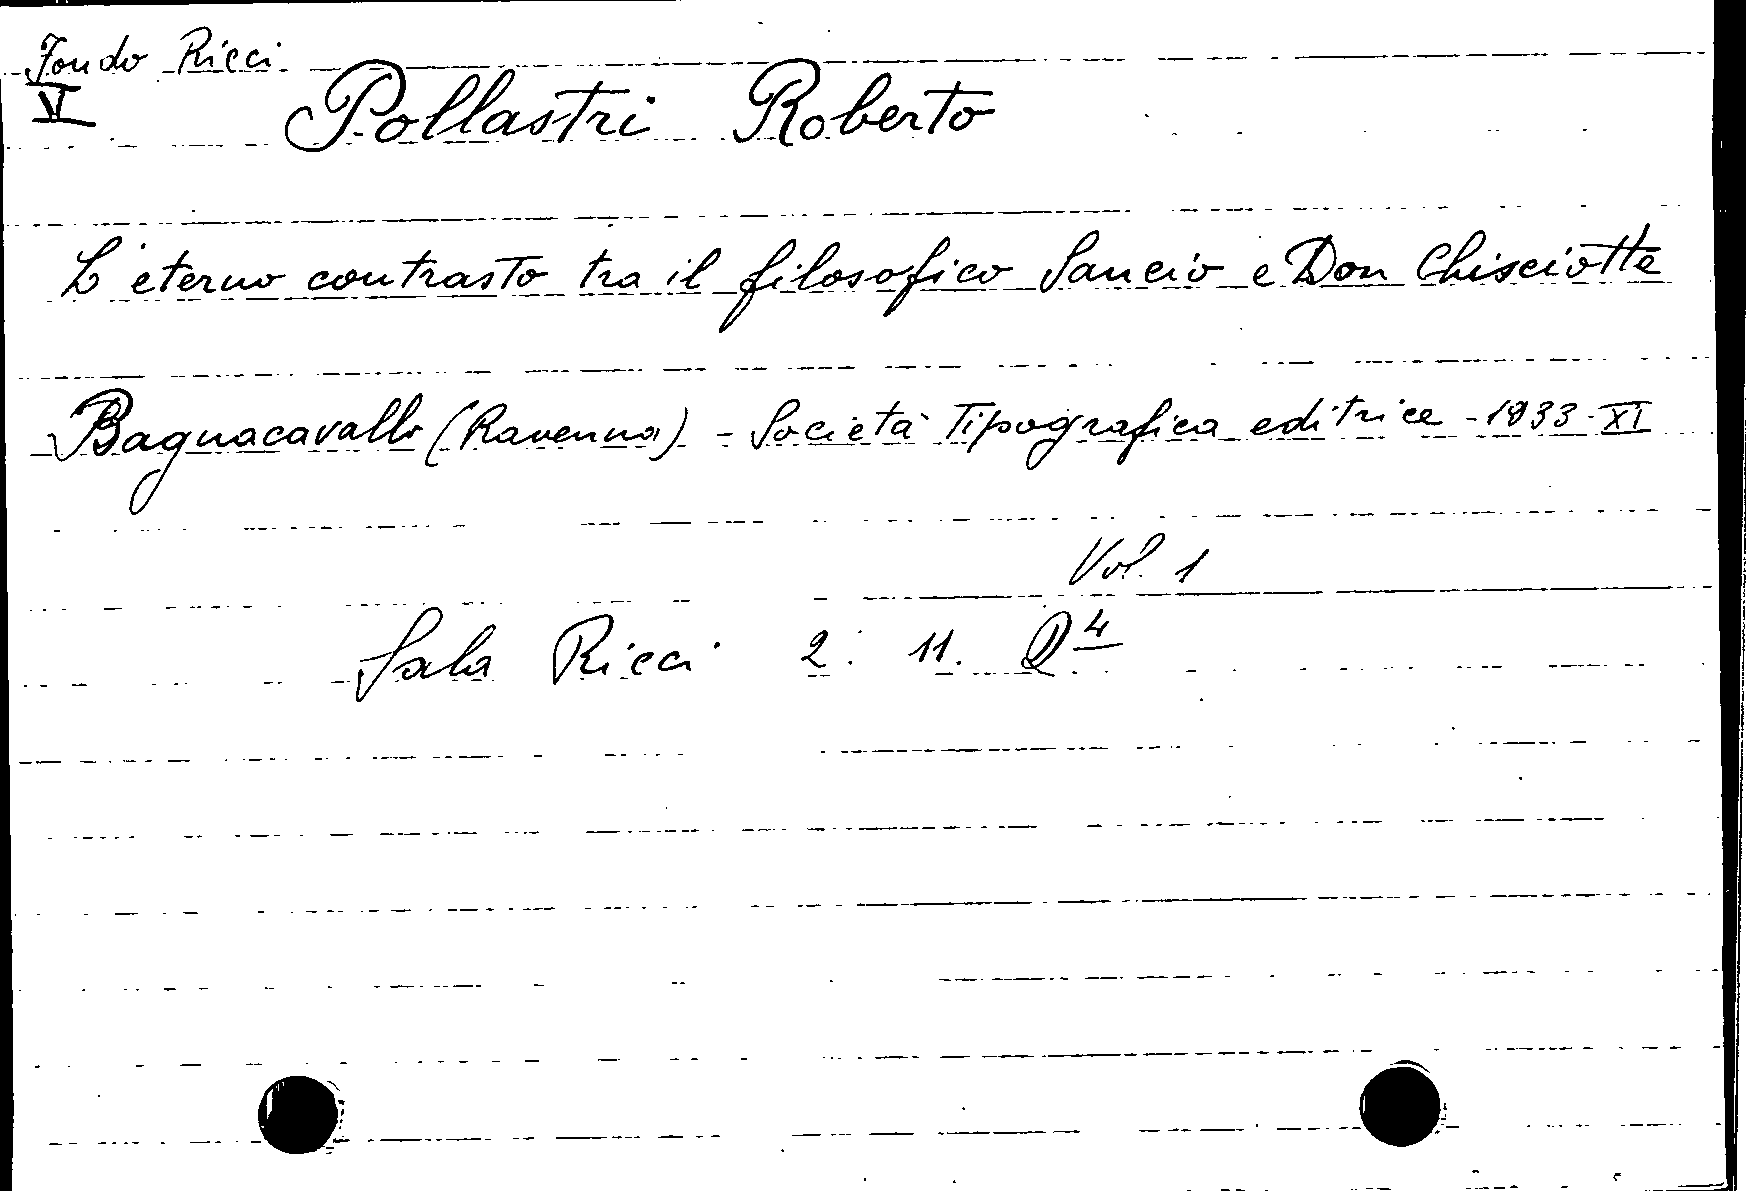 Fondo Ricci
V
Pollastri Roberto
L'eterno contrasto tra il filosofico Sancio e Don Chisciotte
Bagnacavallo (Ravenna) - Società Tipografica editrice - 1933 - XI
Vol. 1
Sala Ricci 2. 11. D 4